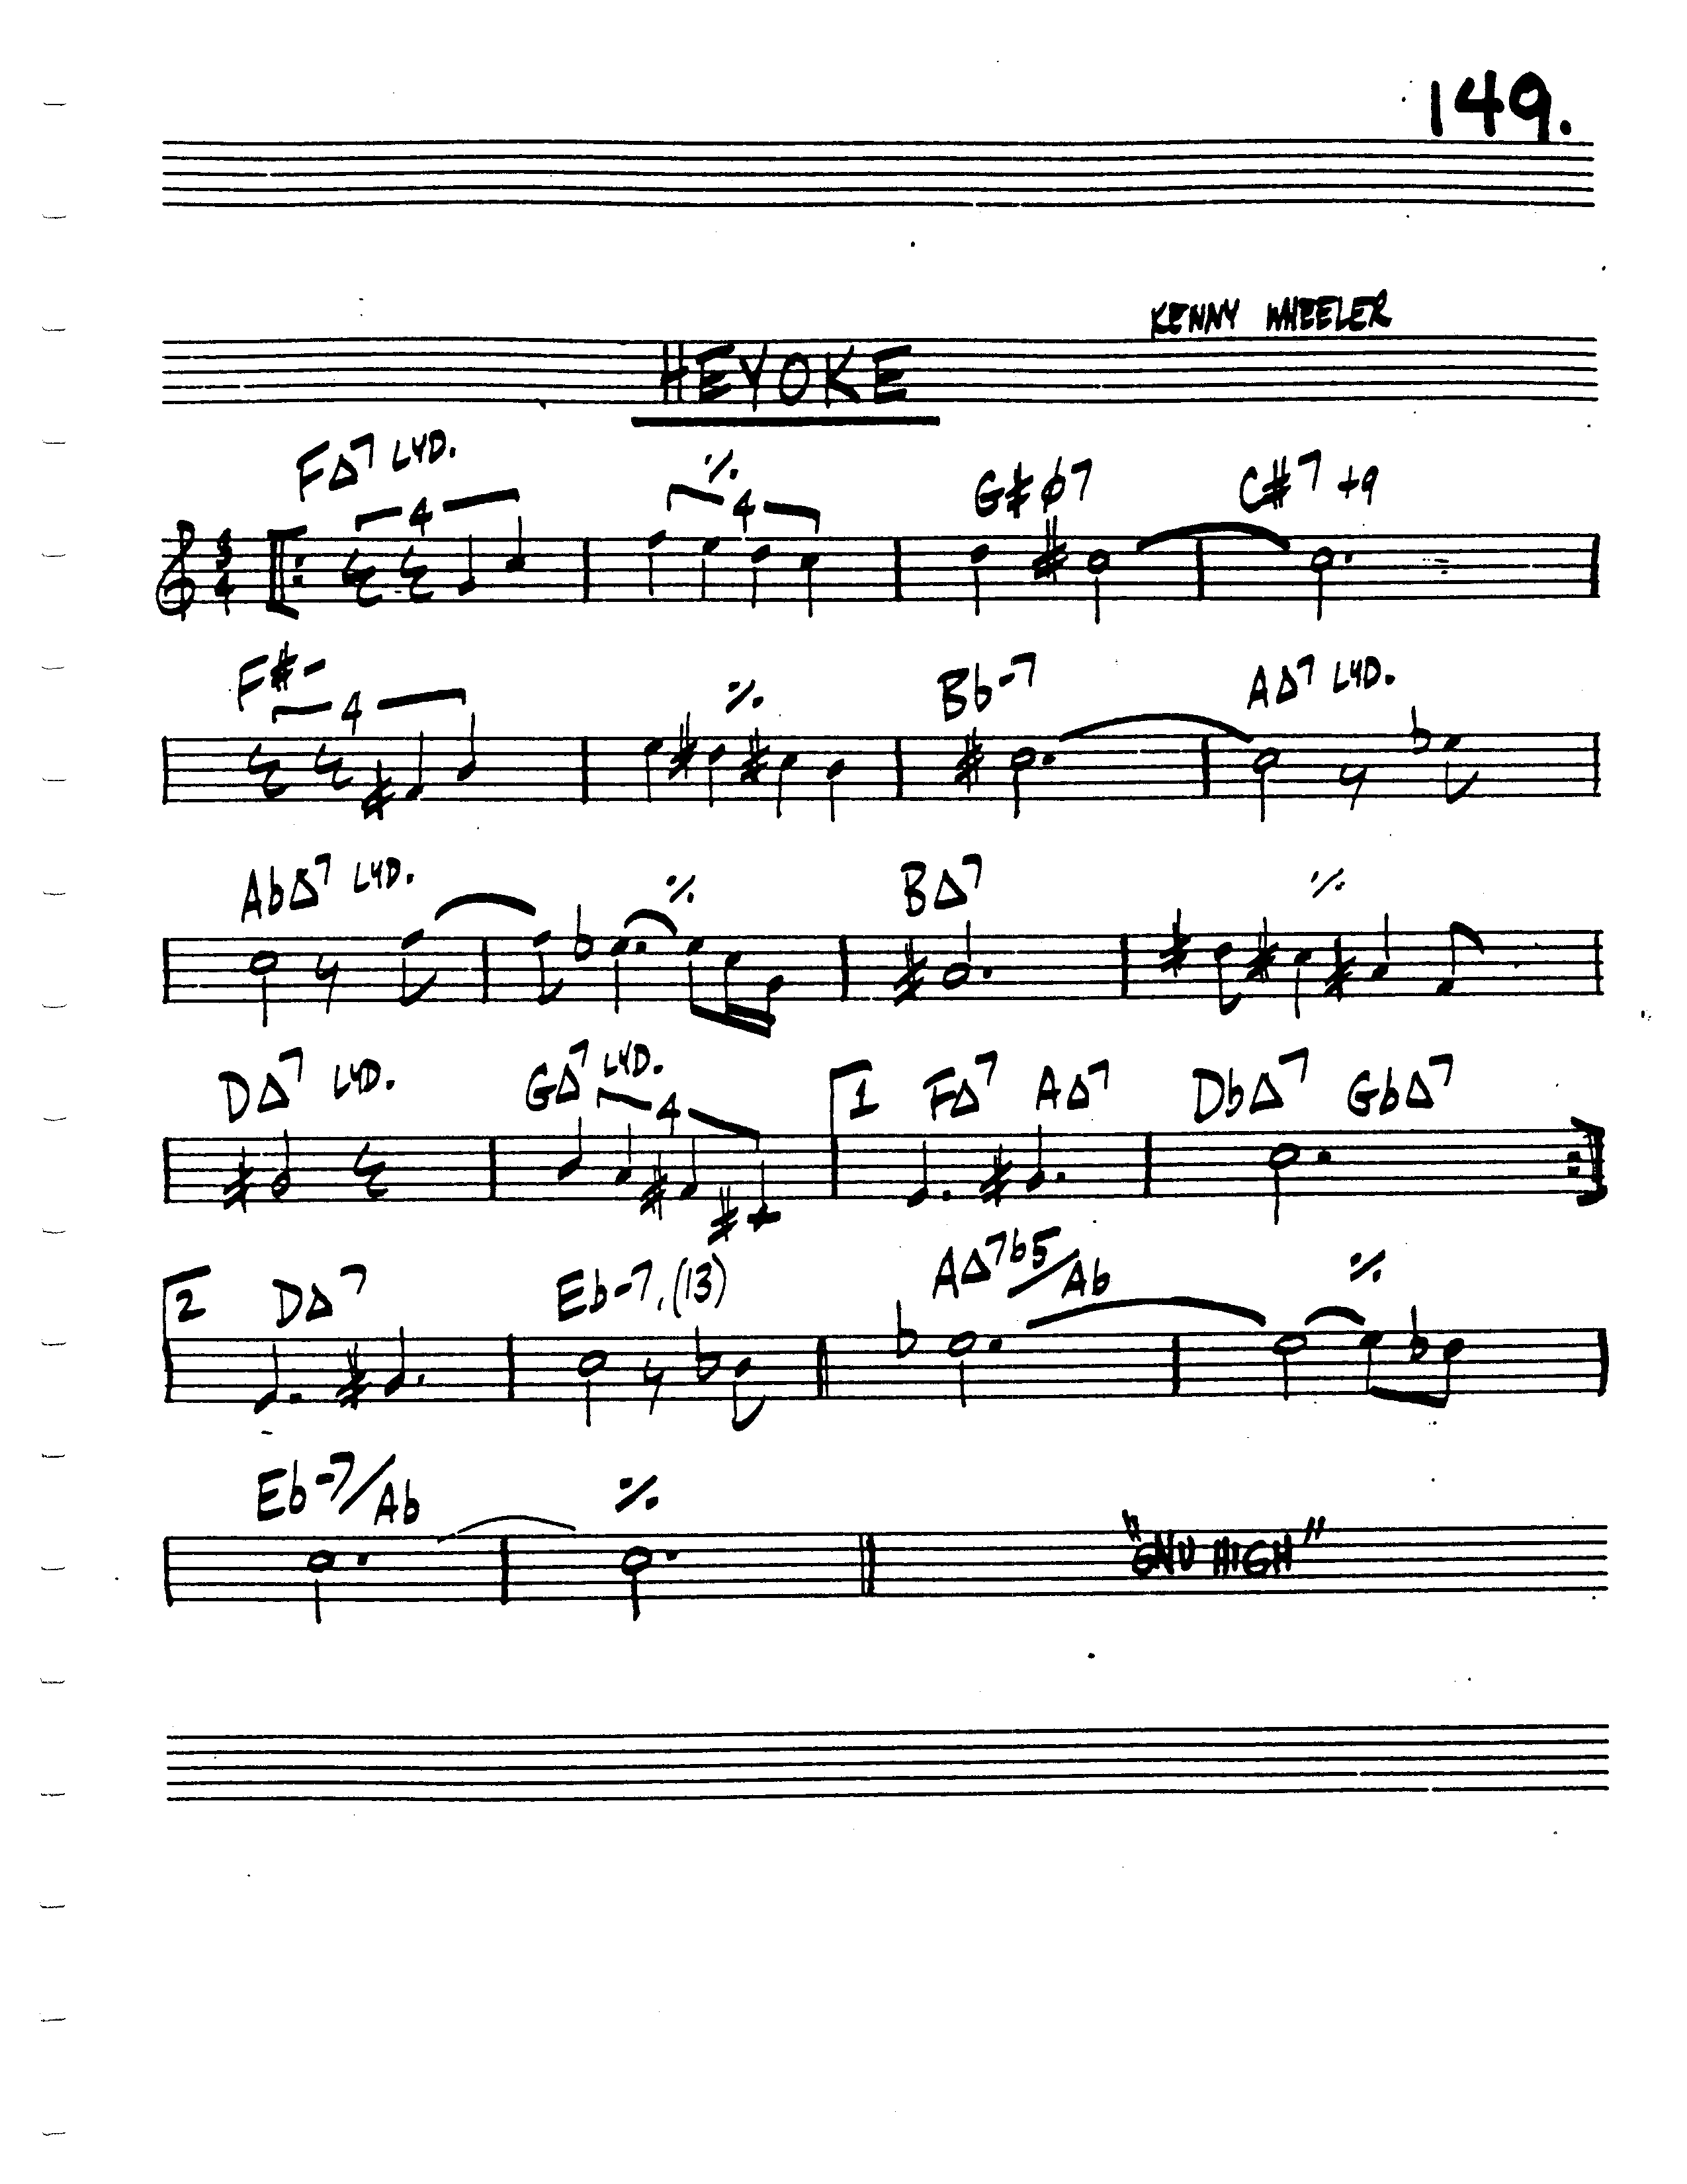 149.
KENNY WHEELER
HEYOKE
FΔ7 LYD. 𝄎 G#ø7 C#7+9
4 4
3
4
F#- 𝄎 Bb-7 AΔ7 LYD.
4
AbΔ7 LYD. 𝄎 BΔ7 𝄎
DΔ7 LYD. GΔ7 LYD. 1 FΔ7 AΔ7 DbΔ7 GbΔ7
4
2 DΔ7 Eb-7,(13) AΔ7b5/Ab 𝄎
Eb-7/Ab 𝄎
"GNU HIGH"